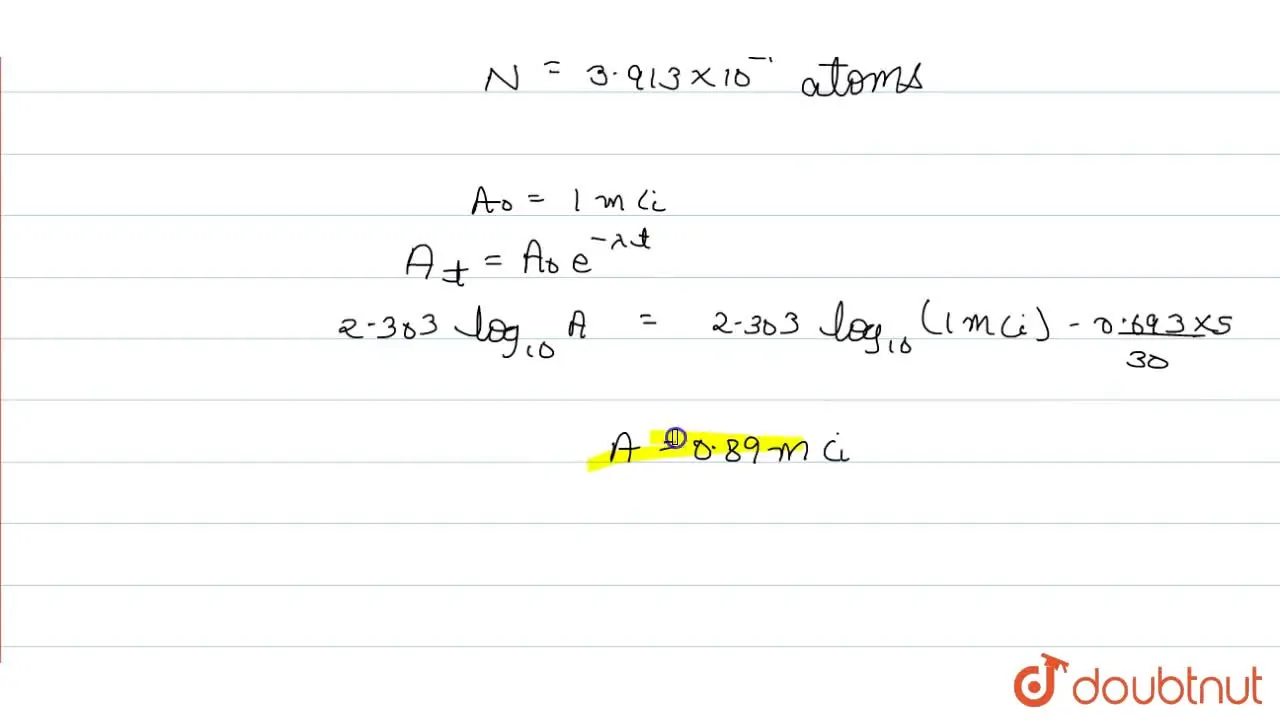 N = 3.913 × 10 atoms
A₀ = 1 m Ci
A_t = A₀ e^{-λt}
2.303 log₁₀ A = 2.303 log₁₀ (1 m Ci) - 0.693 × 5 / 30
A = 0.89 m Ci
doubtnut